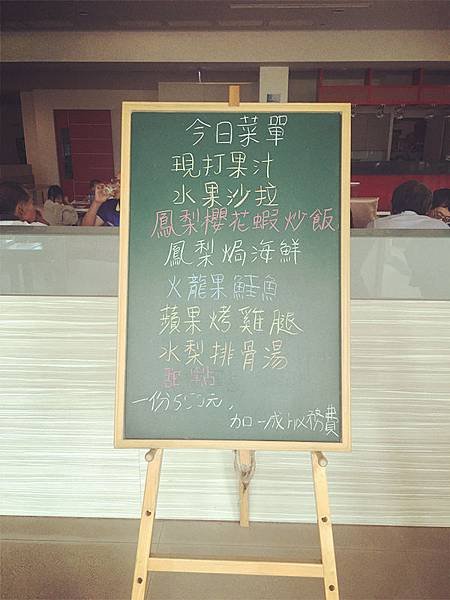 今日菜單
現打果汁
水果沙拉
鳳梨櫻花蝦炒飯
鳳梨焗海鮮
火龍果鮭魚
蘋果烤雞腿
水梨排骨湯
甜點
一份550元,
加一成服務費